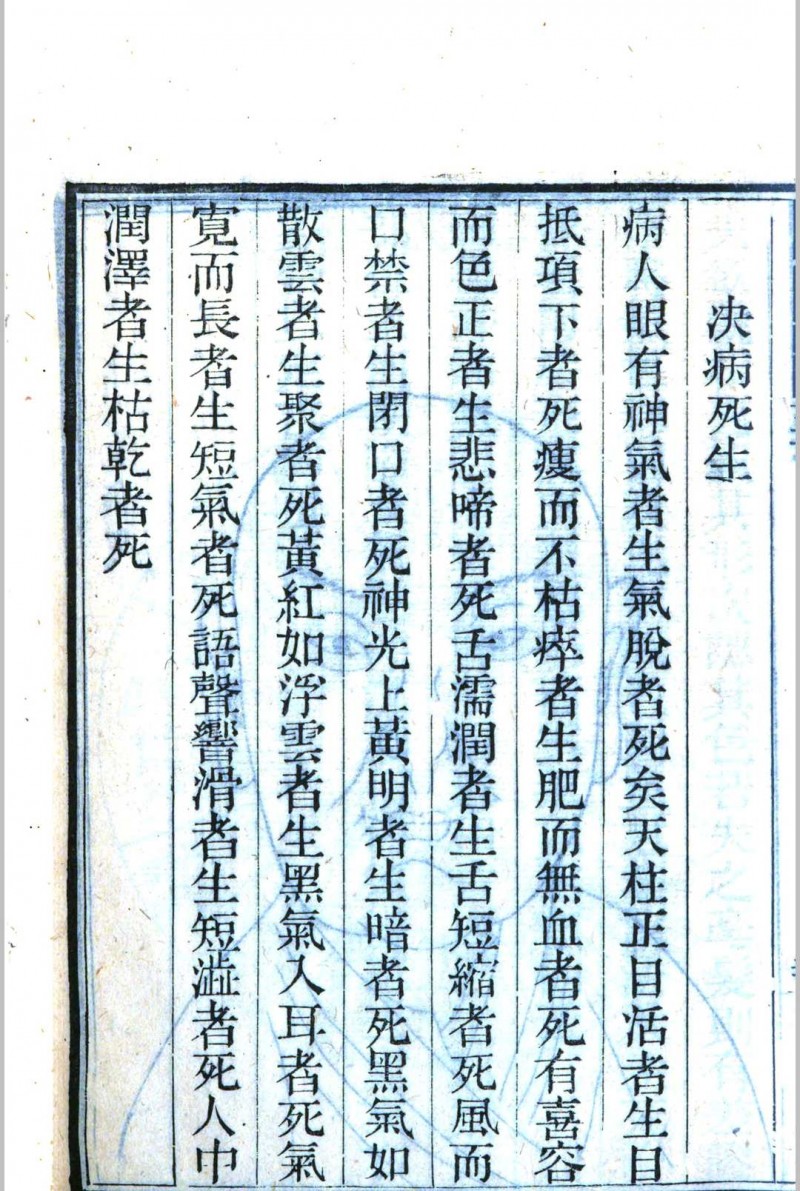 决病死生
病人眼有神氣者生氣脫者死矣天柱正目活者生目
抵項下者死瘦而不枯瘁者生肥而無血者死有喜容
而色正者生悲啼者死舌濡潤者生舌短縮者死風而
口禁者生閉口者死神光上黃明者生暗者死黑氣如
散雲者生聚者死黃紅如浮雲者生黑氣入耳者死氣
寬而長者生短氣者死語聲響滑者生短澁者死人中
潤澤者生枯乾者死